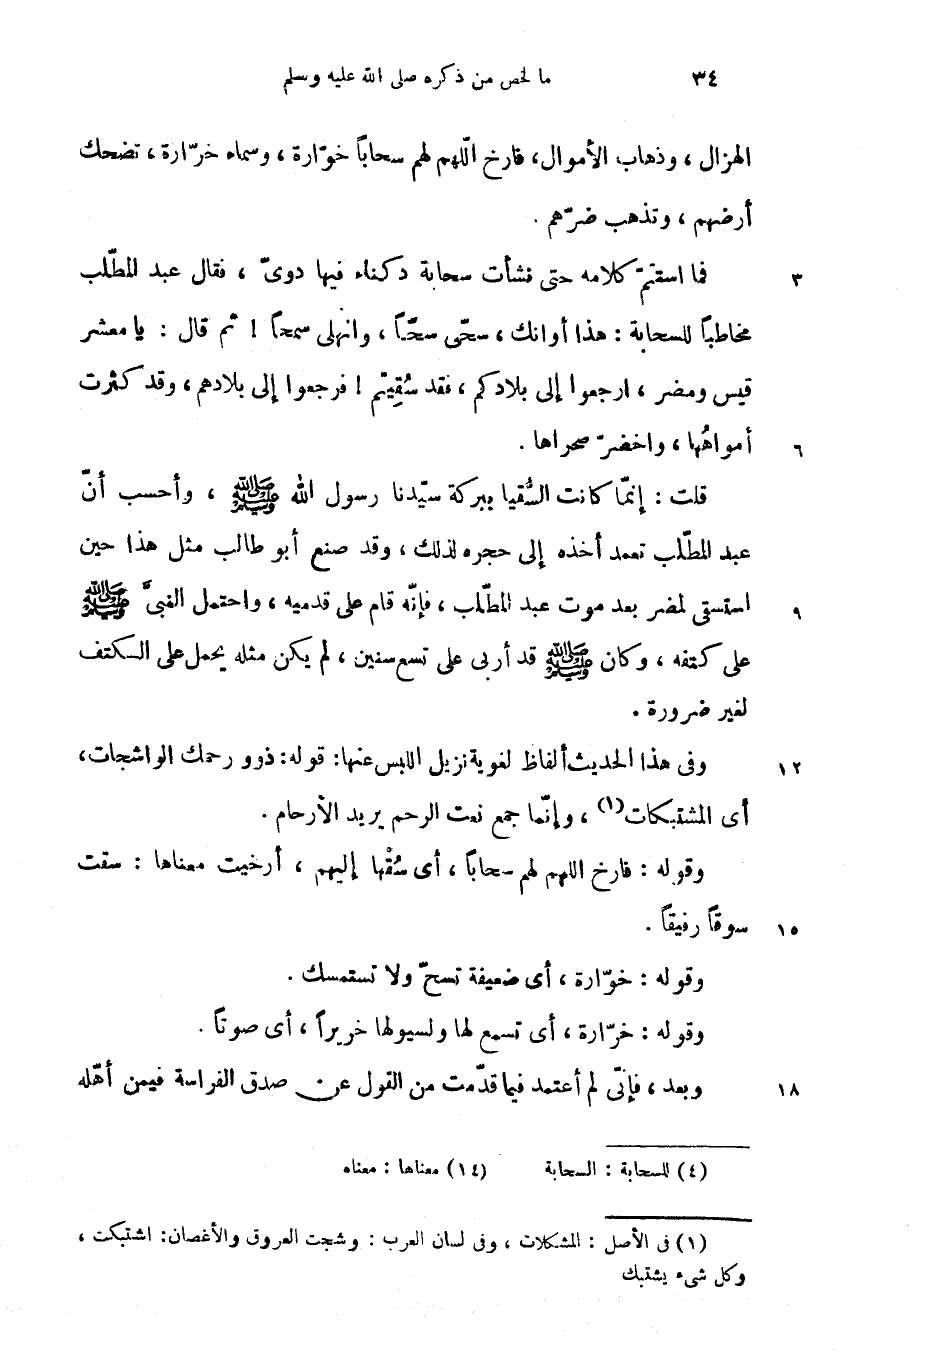 ٣٤ ما لخص من ذكره صلى الله عليه وسلم
الهزال ، وذهاب الأموال، فارخ اللّهم لهم سحاباً خوّارة ، وسماء خرّارة ، تضحك
أرضهم ، وتذهب ضرّهم .
٣ فما استتمّ كلامه حتى نشأت سحابة دكناء فيها دوىّ ، فقال عبد المطّلب
مخاطباً للسحابة : هذا أوانك ، سحّى سحّاً ، وانهلى سمحاً ! ثم قال : يا معشر
قيس ومضر ، ارجعوا إلى بلادكم ، فقد سُقِيتم ! فرجعوا إلى بلادهم ، وقد كثرت
٦ أمواهُها ، واخضرّ صحراها .
قلت : إنّما كانت السُّقيا ببركة سيّدنا رسول الله ﷺ ، وأحسب أنّ
عبد المطّلب تعمد أخذه إلى حجره لذلك ، وقد صنع أبو طالب مثل هذا حين
٩ استسقى لمضر بعد موت عبد المطّلب ، فإنّه قام على قدميه ، واحتمل النبىَّ ﷺ
على كتفه ، وكان ﷺ قد أربى على تسع سنين ، لم يكن مثله يحمل على الكتف
لغير ضرورة .
١٢ وفى هذا الحديث ألفاظ لغوية نزيل اللبس عنها: قوله: ذوو رحمك الواشجات،
أى المشتبكات (١) ، وإنّما جمع نعت الرحم يريد الأرحام .
وقوله : فارخ اللهم لهم سحاباً ، أى سُقْها إليهم ، أرخيت معناها : سقت
١٥ سوقاً رفيقاً .
وقوله : خوّارة ، أى ضعيفة تسحّ ولا تستمسك .
وقوله : خرّارة ، أى تسمع لها ولسيولها خريراً ، أى صوتاً .
١٨ وبعد ، فإنّى لم أعتمد فيما قدّمت من القول عن صدق الفراسة فيمن أهّله
(٤) للسحابة : السحابة (١٤) معناها : معناه
(١) فى الأصل : المشكلات ، وفى لسان العرب : وشجت العروق والأغصان: اشتبكت ،
وكل شىء يشتبك